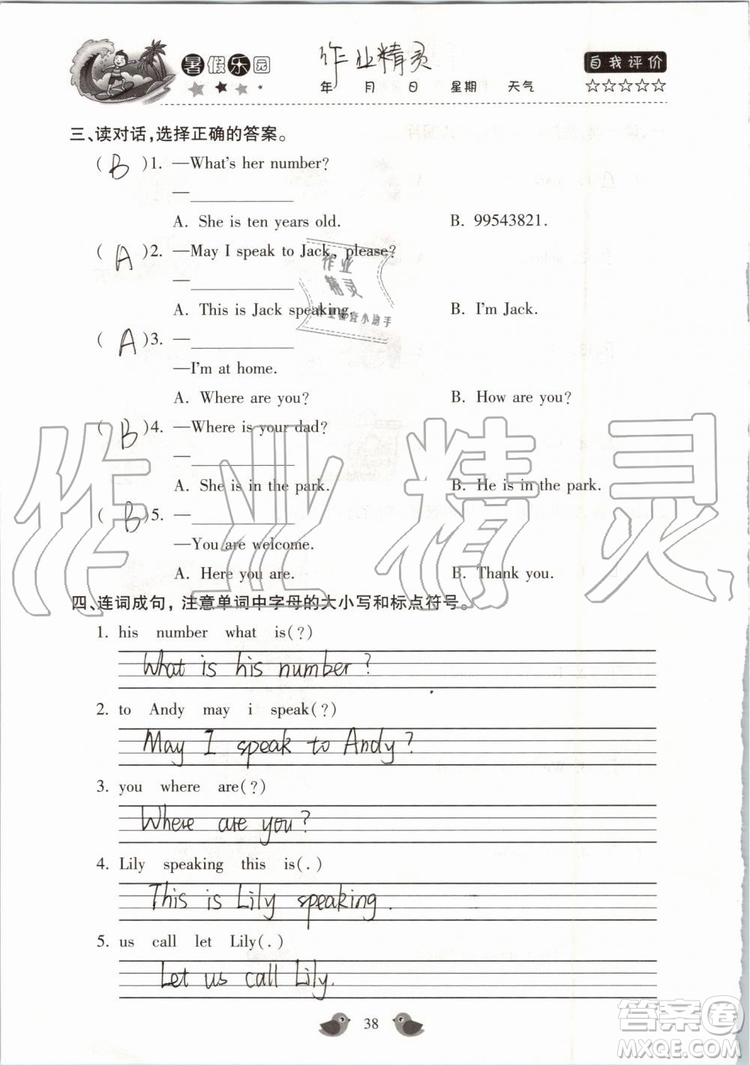 暑假乐园
作业精灵
自我评价
年 月 日 星期 天气
☆☆☆☆☆
三、读对话,选择正确的答案。
( B )1. —What's her number?
—____________
A. She is ten years old. B. 99543821.
( A )2. —May I speak to Jack, please?
—____________
作业
精灵
A. This is Jack speaking. B. I'm Jack.
( A )3. —____________
—I'm at home.
A. Where are you? B. How are you?
( B )4. —Where is your dad?
—____________
A. She is in the park. B. He is in the park.
( B )5. —____________
—You are welcome.
A. Here you are. B. Thank you.
作业精灵
四、连词成句，注意单词中字母的大小写和标点符号。
1. his number what is(?)
What is his number?
2. to Andy may i speak(?)
May I speak to Andy?
3. you where are(?)
Where are you?
4. Lily speaking this is(.)
This is Lily speaking.
5. us call let Lily(.)
Let us call Lily.
38
答案圈
MXQE.COM